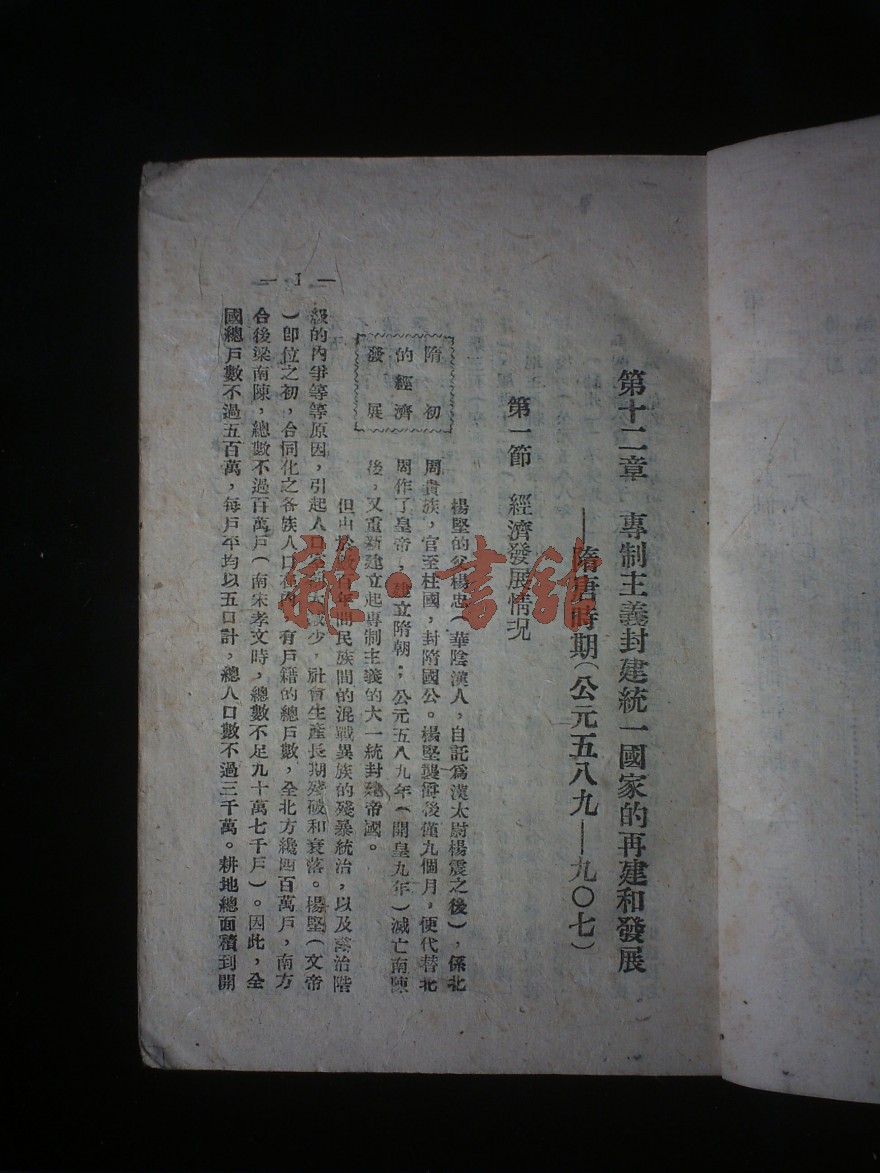 第十二章　專制主義封建統一國家的再建和發展
——隋唐時期（公元五八九——九〇七）
第一節　經濟發展情況
隋初
的經濟
發展
楊堅的父楊忠（華陰漢人，自託爲漢太尉楊震之後），係北
周貴族，官至柱國，封隋國公。楊堅襲爵後僅九個月，便代替北
周作了皇帝，建立隋朝；公元五八九年（開皇九年）滅亡南陳
後，又重新建立起專制主義的大一統封建帝國。
但由於百年間民族間的混戰異族的殘暴統治，以及統治階
級的內爭等等原因，引起人口減少，社會生產長期殘破和衰落。楊堅（文帝
）卽位之初，合同化之各族人口在內，有戶籍的總戶數，全北方纔四百萬戶，南方
合後梁南陳，總數不過百萬戶（南宋孝文時，總數不足九十萬七千戶）。因此，全
國總戶數不過五百萬，每戶平均以五口計，總人口數不過三千萬。耕地總面積到開
— 1 —
雜·書館